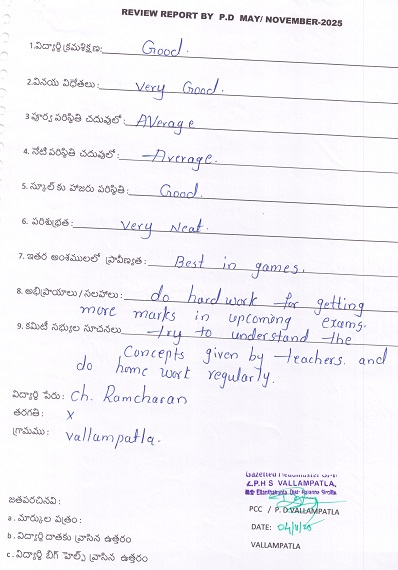 REVIEW REPORT BY P.D MAY/ NOVEMBER-2025
1.విద్యార్థి క్రమశిక్షణ: Good.
2.వినయ విధేతలు: Very Good.
3 పూర్వ పరిస్థితి చదువులో: AVerage
4. నేటి పరిస్థితి చదువులో: Average.
5. స్కూల్ కు హాజరు పరిస్థితి: Good.
6. పరిశుభ్రత: Very Neat.
7. ఇతర అంశములలో ప్రావీణ్యత: Best in games.
8. అభిప్రాయాలు /సలహాలు: do hardwork for getting
more marks in upcoming exams.
9. కమిటీ సభ్యుల సూచనలు try to understand the
Concepts given by teachers. and
do home work regularly.
విద్యార్థి పేరు: Ch. Ramcharan
తరగతి: X
గ్రామము: Vallampatla.
జతపరచినవి:
a. మార్కుల పత్రం:
b. విద్యార్థి దాతకు వ్రాసిన ఉత్తరం
c. విద్యార్థి బిగ్ హెల్ప్ వ్రాసిన ఉత్తరం
Gazetted Headmaster
Z.P.H S VALLAMPATLA,
PCC / P.D.VALLAMPATLA
DATE: 04/11/25
VALLAMPATLA